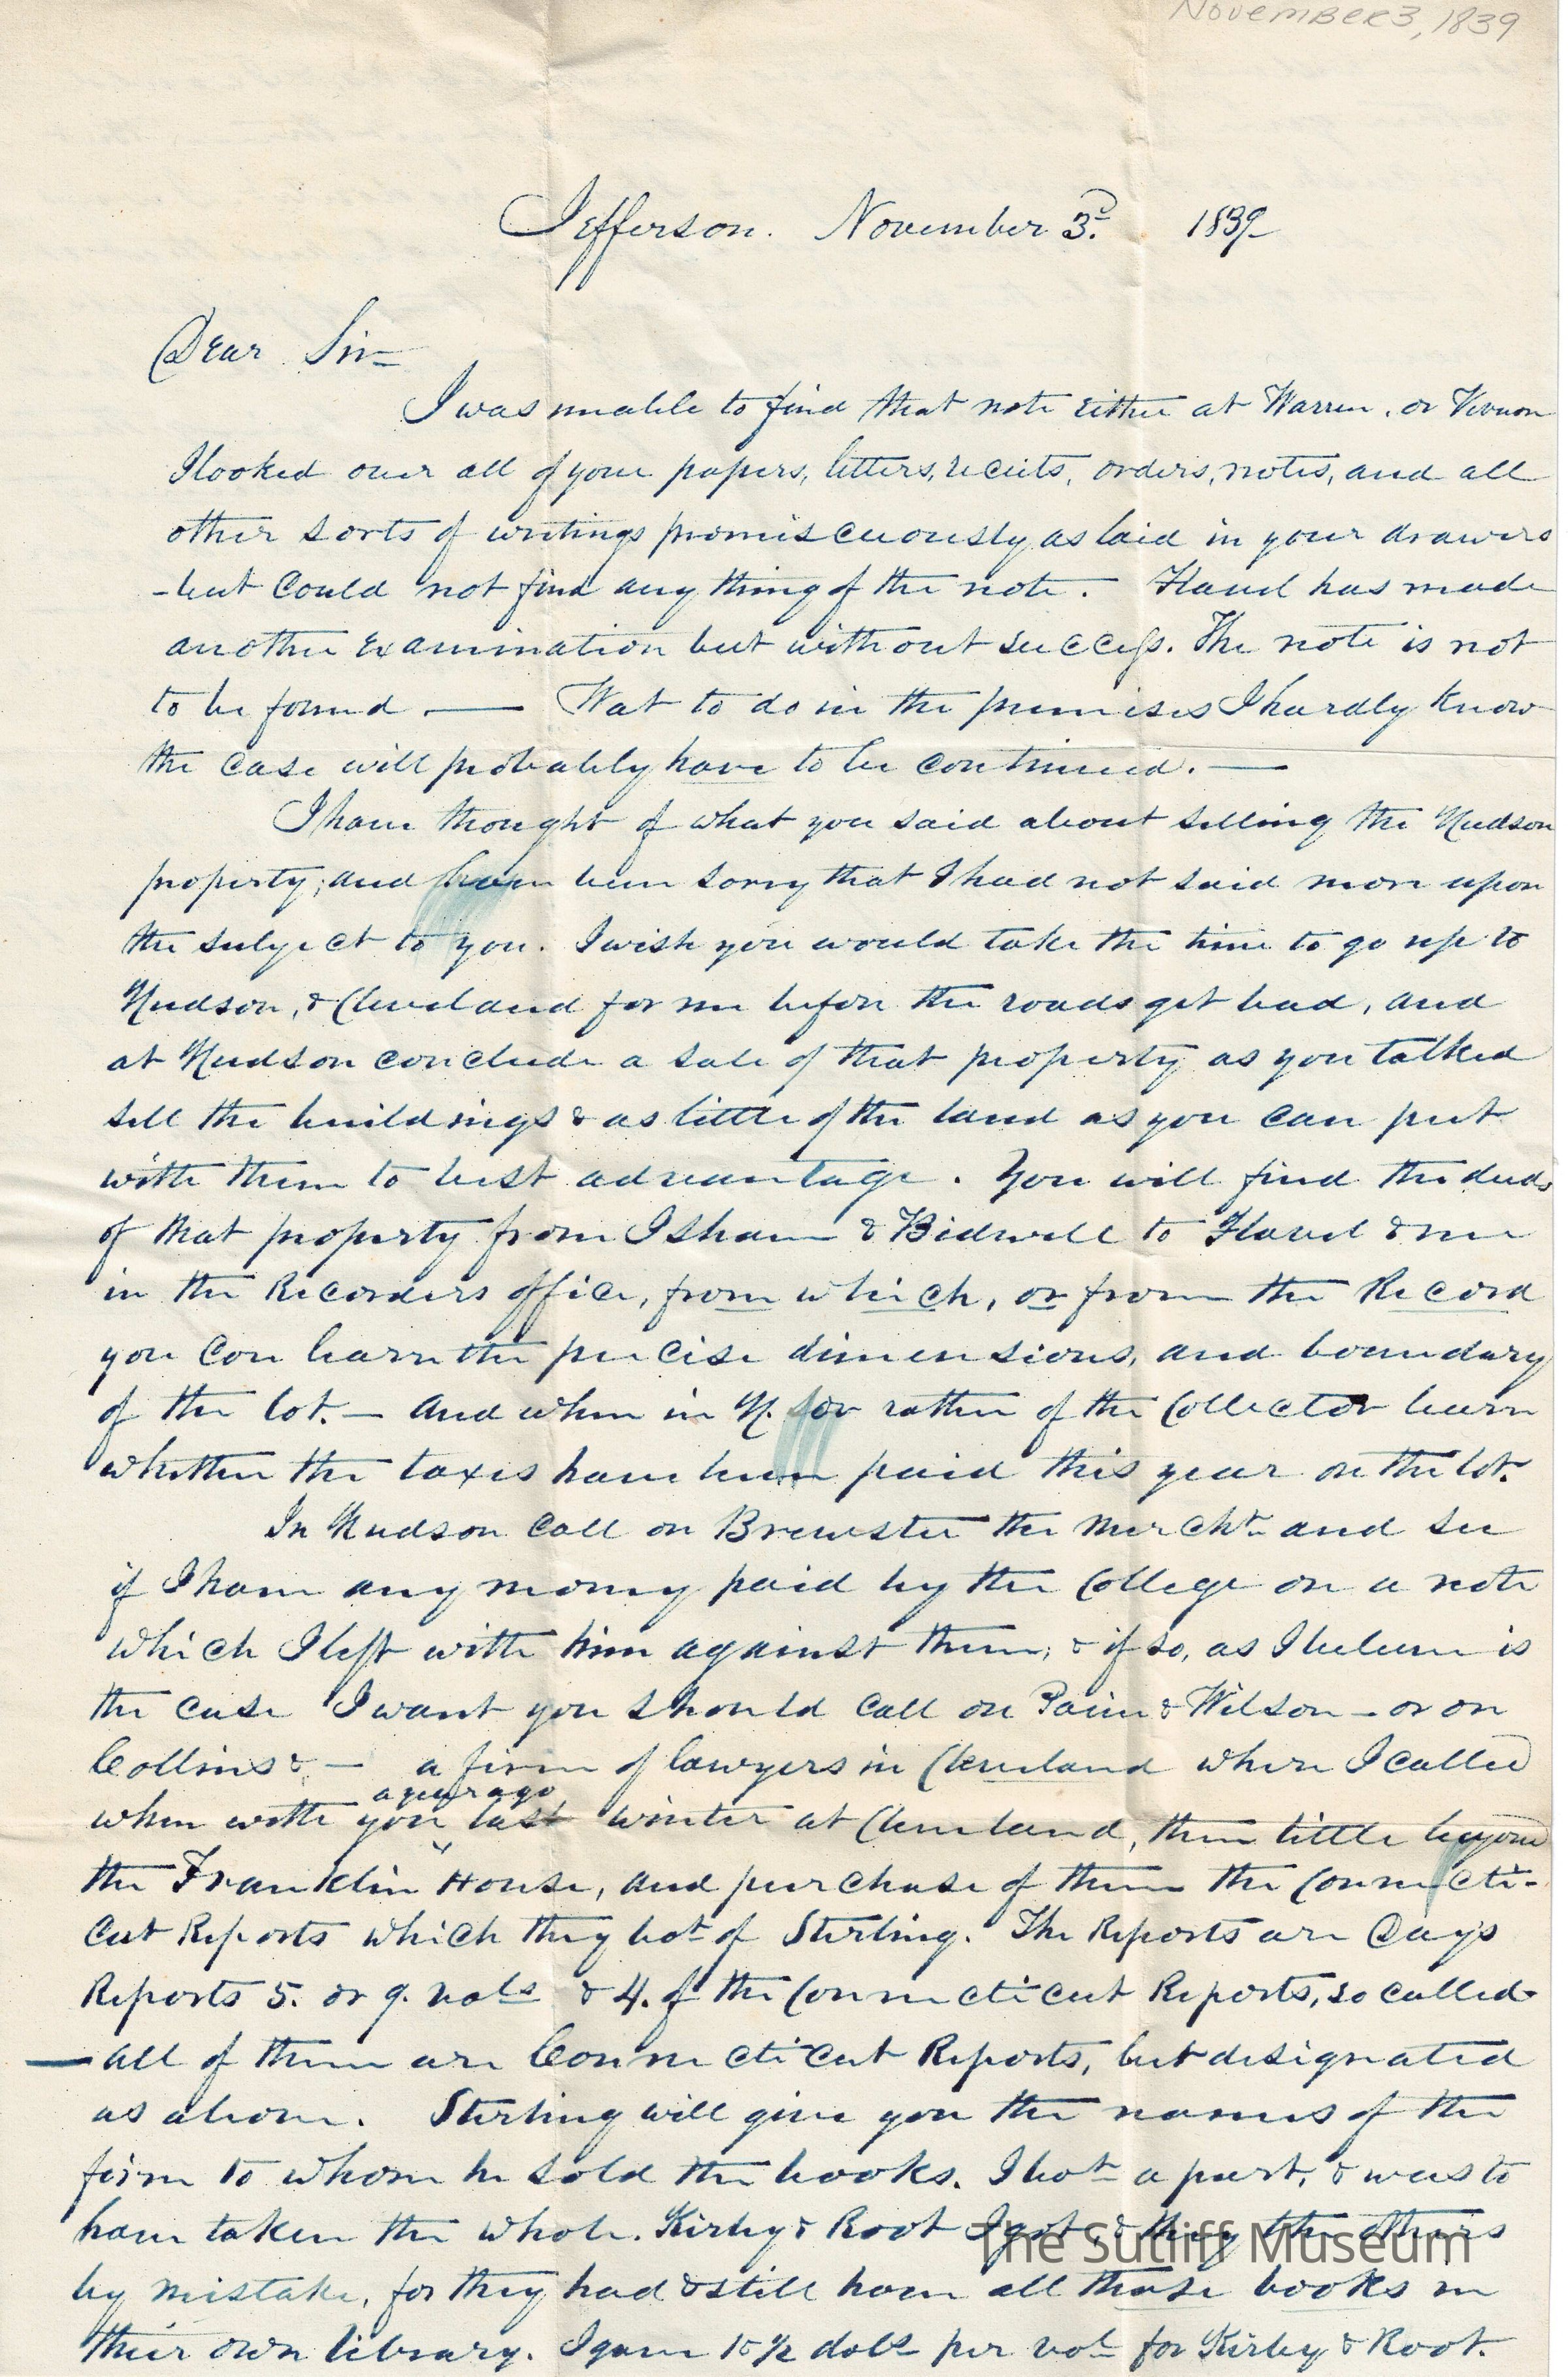 November 3, 1839
Jefferson. November 3d. 1839
Dear Sir
I was unable to find that note either at Warren, or Vernon
I looked over all of your papers, letters, reciets, orders, notes, and all
other sorts of writings promiscuously as laid in your drawers
- but could not find any thing of the note. Flavel has made
another examination but without success. The note is not
to be found — Wat to do in the premises I hardly know
the case will probably have to be continued. —
I have thought of what you said about selling the Hudson
property; and have been sorry that I had not said more upon
the subject to you. I wish you would take the time to go up to
Hudson, & Cleveland for me before the roads get bad, and
at Hudson conclude a sale of that property as you talked
sell the buildings & as little of the land as you can put
with them to best advantage. You will find the deeds
of that property from Isham & Bidwell to Flavel & me
in the Recorders office, from which, or from the Record
you can learn the precise dimensions, and boundary
of the lot. — And when in H. for rather of the Collector learn
whether the taxes have been paid this year on the lot.
In Hudson call on Brewster the Mercht and see
if I have any money paid by the College on a note
which I left with him against them, & if so, as I beleive is
the case I want you should call on Paine & Wilson — or on
Collins & — a firm of lawyers in Cleveland where I called
a year ago
when with you last winter at Cleveland, then little beyond
the Franklin "House, and purchase of them the Connecti-
cut Reports which they bot of Sterling. The Reports are Days
Reports 5. or 9. vols & 4. of the Connecticut Reports, so called
— all of them are Connecticut Reports, but designated
as above. Sterling will give you the names of the
firm to whom he sold the books. I bot a part, & was to
have taken the whole. Kirby & Root I got, & they the others
by mistake, for they had & still have all those books in
their own library. I gave 15/2 dols per vol for Kirby & Root.
The Sutliff Museum